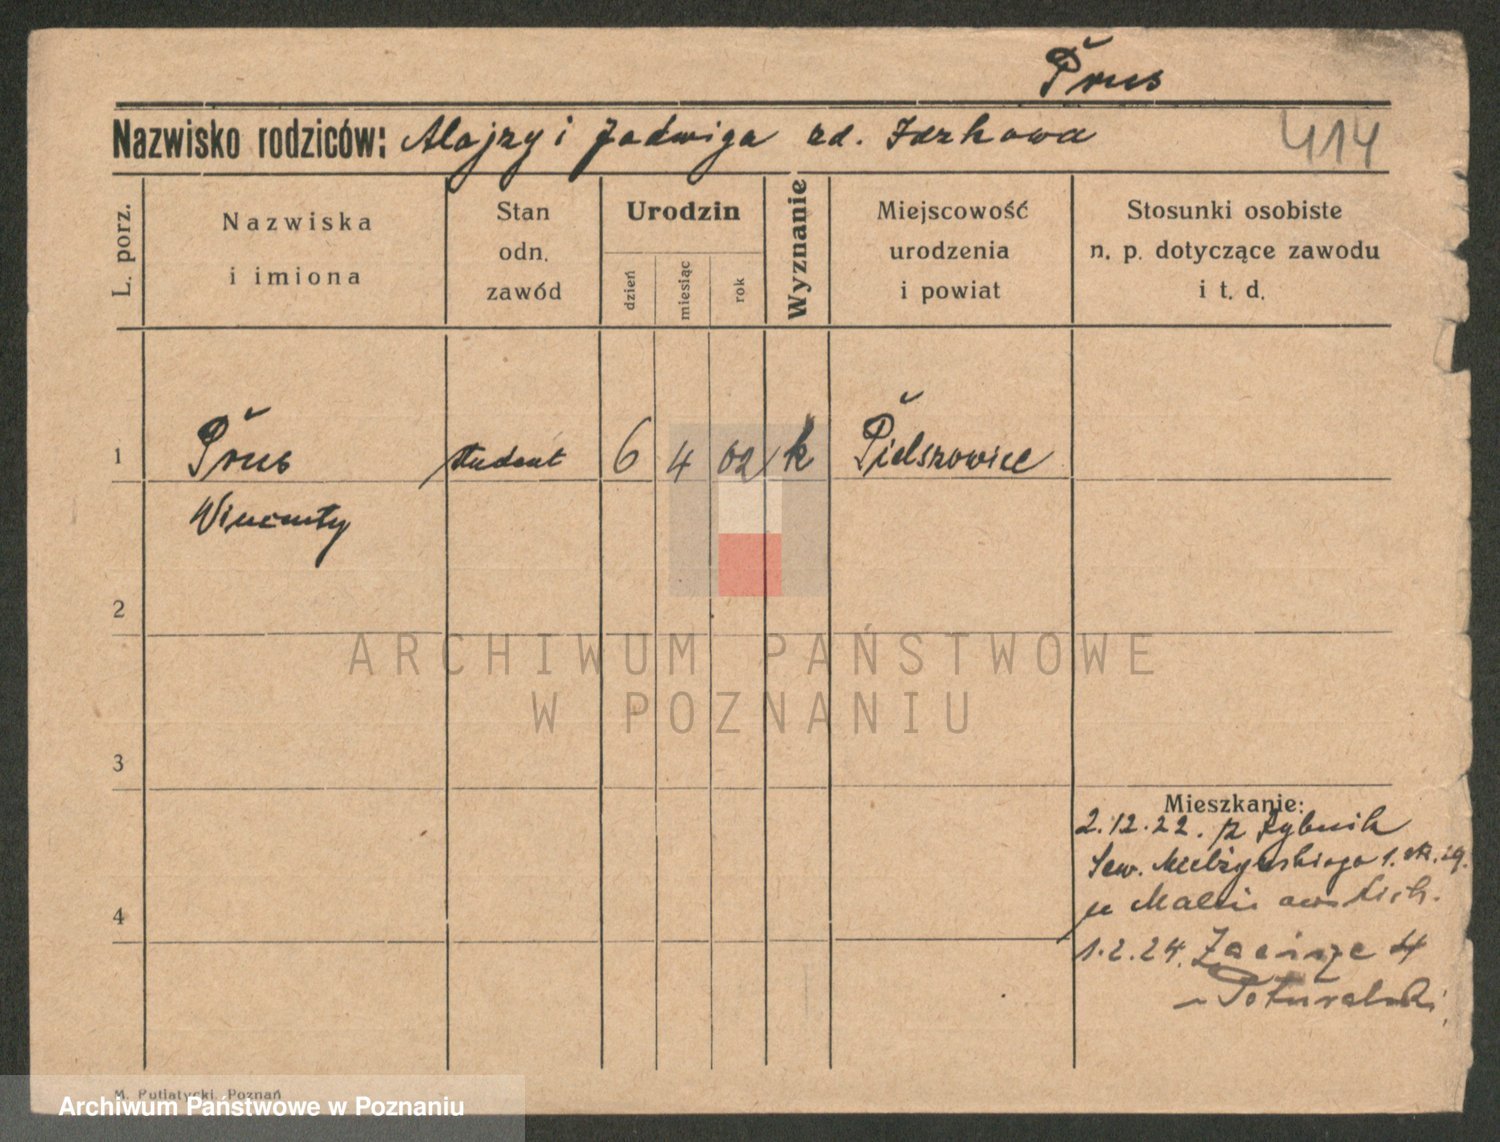 Prus
Nazwisko rodziców: Alojzy i Jadwiga zd.
414
L. porz.
Nazwiska
i imiona
Stan
odn.
zawód
Urodzin
dzień
miesiąc
rok
Wyznanie
Miejscowość
urodzenia
i powiat
Stosunki osobiste
n. p. dotyczące zawodu
i t. d.
1 Prus student 6 4 02 k Pielszowice
Wincenty
2
ARCHIWUM PAŃSTWOWE
W POZNANIU
3
Mieszkanie:
2.12.22. z Rybnik
Sew. Mielżyńskiego
4
1.2.24. Zacisze 4
M. Putiatycki, Poznań
Archiwum Państwowe w Poznaniu